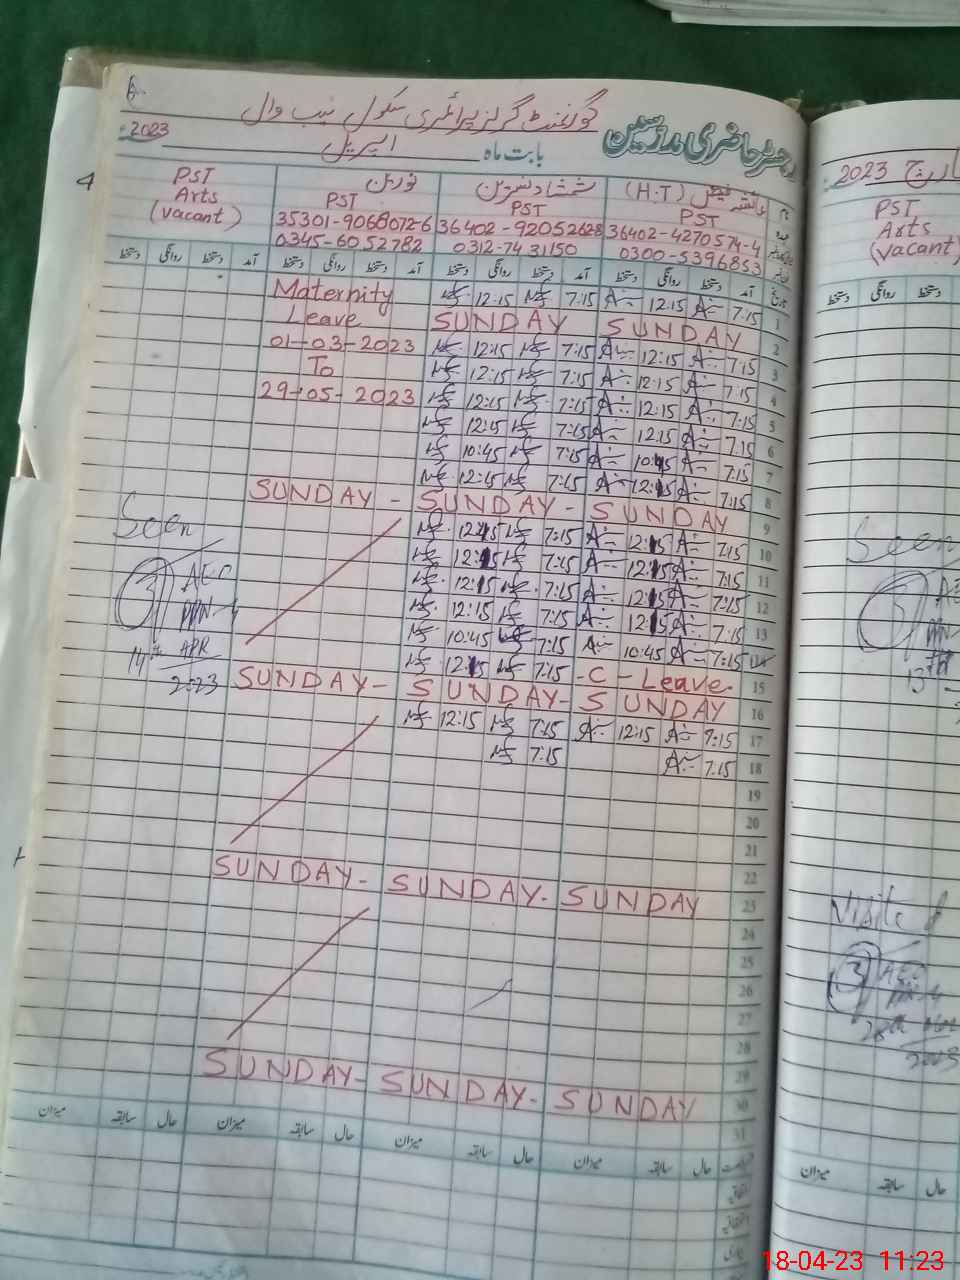 گورنمنٹ گرلز پرائمری سکول نیب وال
رجسٹر حاضری مدرسین
بابت ماہ اپریل 2023ء
عائشہ فیض (H.T)
PST
36402-4270574-4
0300-5396853
شمشاد نسرین
PST
36402-92052628
0312-7431150
نورین
PST
35301-9068072-6
0345-6052782
PST
Arts
(vacant)
آمد دستخط روانگی دستخط آمد دستخط روانگی دستخط آمد دستخط روانگی دستخط آمد دستخط روانگی دستخط
Maternity
Leave
01-03-2023
To
29-05-2023
12:15 7:15 12:15 7:15 1
SUNDAY SUNDAY 2
12:15 7:15 12:15 7:15 3
12:15 7:15 12:15 7:15 4
12:15 7:15 12:15 7:15 5
12:15 7:15 12:15 7:15 6
10:45 7:15 10:45 7:15 7
12:15 7:15 12:15 7:15 8
SUNDAY - SUNDAY - SUNDAY 9
12:15 7:15 12:15 7:15 10
12:15 7:15 12:15 7:15 11
12:15 7:15 12:15 7:15 12
12:15 7:15 12:15 7:15 13
10:45 7:15 10:45 7:15 14
12:15 7:15 -C-Leave- 15
SUNDAY - SUNDAY - SUNDAY 16
12:15 7:15 12:15 7:15 17
7:15 7:15 18
19
20
21
22
SUNDAY - SUNDAY - SUNDAY 23
24
25
26
27
28
29
SUNDAY - SUNDAY - SUNDAY 30
31
Seen
AEO
14th APR
2023
میزان سابقہ حال میزان سابقہ حال میزان سابقہ حال میزان سابقہ حال
اتفاقیہ
مارچ 2023
PST
Arts
(vacant)
دستخط روانگی دستخط
Seen
AEO
13th
Visited
AEO
28th
2023
میزان سابقہ حال
18-04-23 11:23